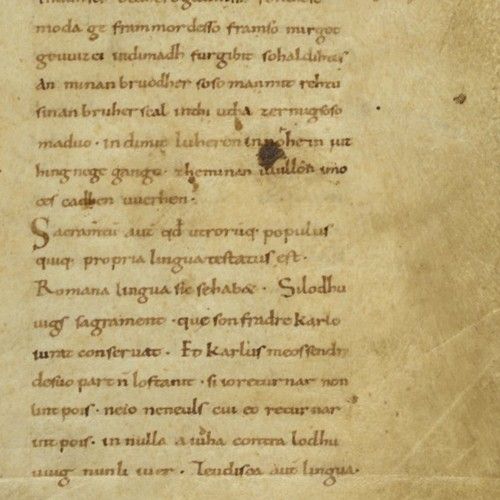 moda ge frammordesso framso mirgot
geuuizci indimadh furgibit sohaldihtes
an minan bruodher soso manmit rehtu
sinan bruher scal inthi utha zermigsoso
maduo · indimit luheren innohein iut
hing nege gango · zheminan uuillon imo
ces cadhen uuerhen ·
Sacramentū autē qđ utrorūq; populus
quiq; propria lingua testatus est ·
Romana lingua sic sehabæ · Silodhu
uigs sagrament · que son fradre karlo
iurat conservat · Et karlus meossendr
desuo part n̄ lostanit · si ioreturnar non
lint pois · neio neneuls cui eo returnar
int pois · in nulla aiuha contra lodhu
uuig nunli iuer · Teudisca autē lingua ·